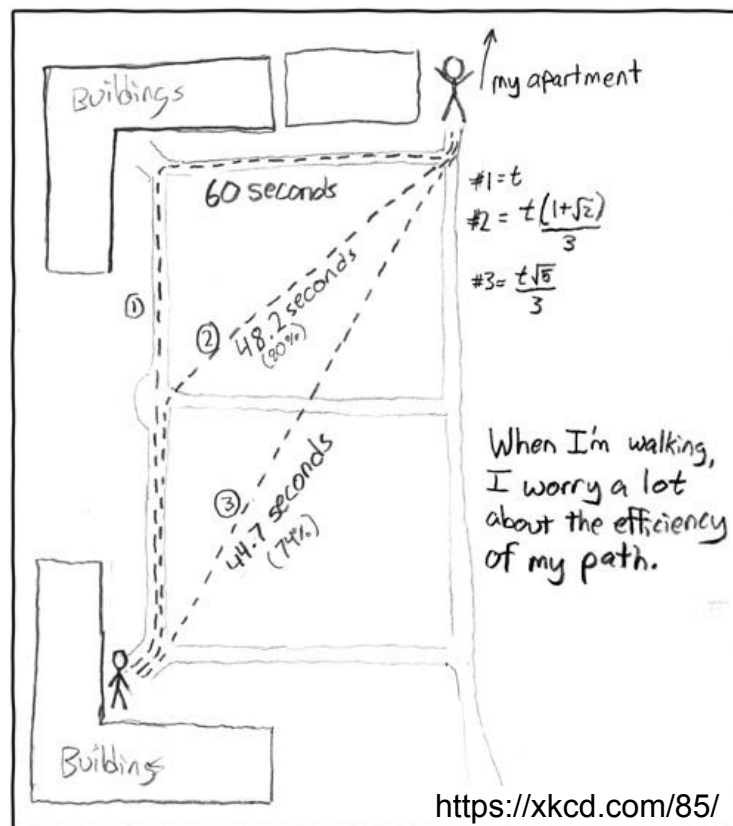 Buildings
my apartment
60 seconds
#1 = t
#2 = t(1+√2)/3
#3 = t√5/3
①
②
48.2 seconds
(80%)
③
44.7 seconds
(74%)
When I'm walking,
I worry a lot
about the efficiency
of my path.
Buildings
https://xkcd.com/85/